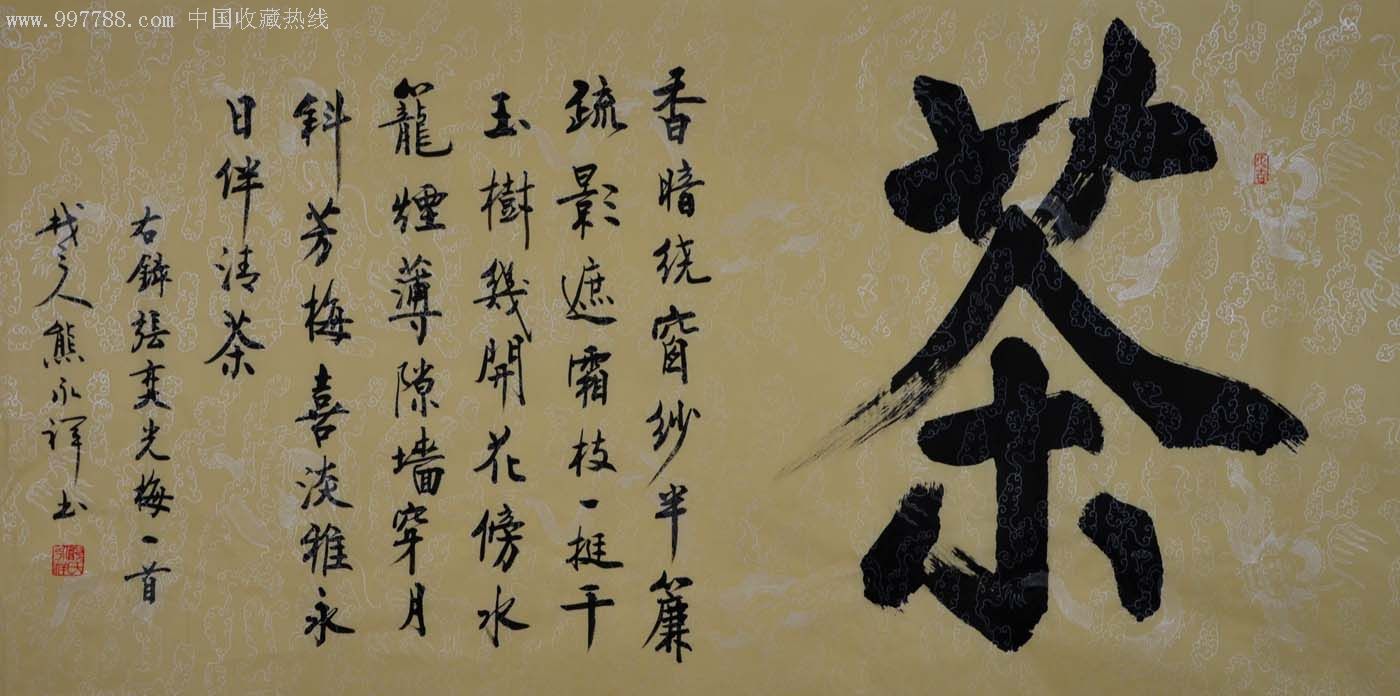 www.997788.com 中国收藏热线
茶
香暗绕窗纱半簾
疏影遮霜枝一挺干
玉樹幾開花傍水
籠煙薄隙墙穿月
斜芳梅喜淡雅永
日伴清茶
右錄張奕光梅一首
我之人熊永祥书